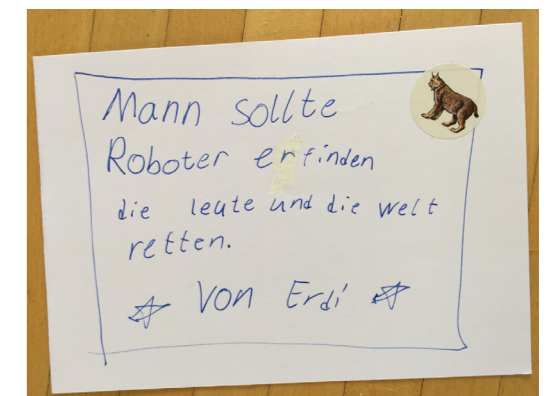 Mann sollte
Roboter erfinden
die leute und die welt
retten.
Von Erdi